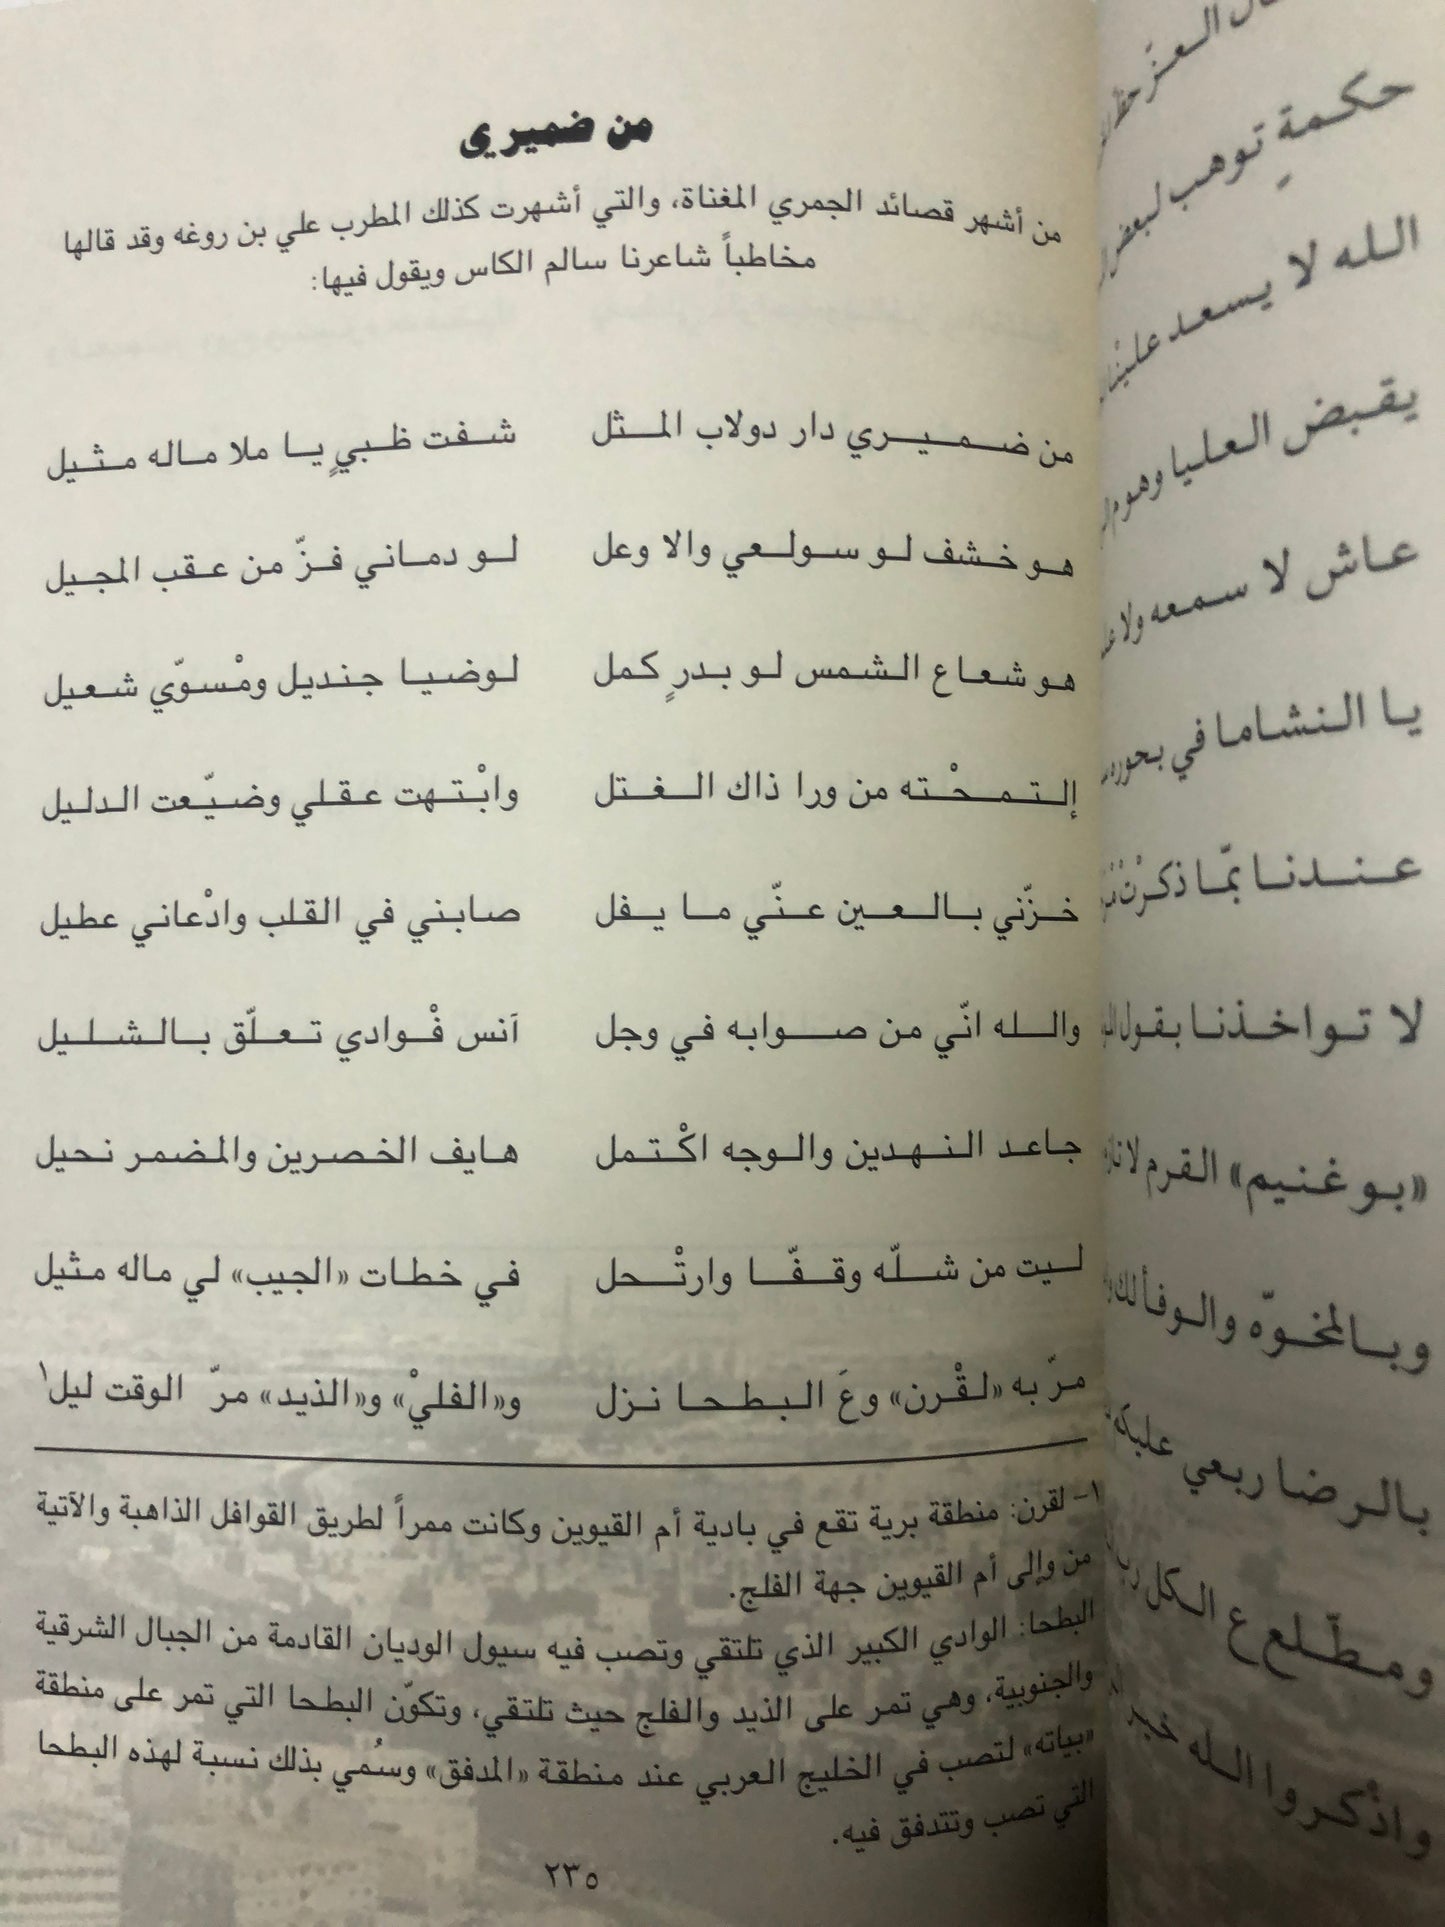 من ضميري
من أشهر قصائد الجمري المغناة، والتي أشهرت كذلك المطرب علي بن روغه وقد قالها
مخاطباً شاعرنا سالم الكاس ويقول فيها:
من ضميري دار دولاب المثل شفت ظبيٍ يا ملا ماله مثيل
هو خشف لو سولعي والا وعل لو دماني فزّ من عقب المجيل
هو شعاع الشمس لو بدرٍ كمل لوضيا جنديل ومْسوّي شعيل
إلتمحْته من ورا ذاك الغتل وابْتهت عقلي وضيّعت الدليل
خزّني بالعين عنّي ما يفل صابني في القلب وادْعاني عطيل
والله انّي من صوابه في وجل آنس فْوادي تعلّق بالشليل
جاعد النهدين والوجه اكْتمل هايف الخصرين والمضمر نحيل
ليت من شلّه وقفّا وارتْحل في خطات «الجيب» لي ماله مثيل
مرّ به «لقْرن» وعَ البطحا نزل و«الفليْ» و«الذيد» مرّ الوقت ليل١
١- لقرن: منطقة برية تقع في بادية أم القيوين وكانت ممراً لطريق القوافل الذاهبة والآتية
من وإلى أم القيوين جهة الفلج.
البطحا: الوادي الكبير الذي تلتقي وتصب فيه سيول الوديان القادمة من الجبال الشرقية
والجنوبية، وهي تمر على الذيد والفلج حيث تلتقي، وتكوّن البطحا التي تمر على منطقة
«بياته» لتصب في الخليج العربي عند منطقة «المدفق» وسُمي بذلك نسبة لهذه البطحا
التي تصب وتتدفق فيه.
٢٣٥
العز حظ
حكمةٍ توهب لبعض
الله لا يسعد
يقبض العليا وهوم
عاش لا سمعه ولا
يا النشاما في
عندنا بمّا
لا تواخذنا بقول
«بو غنيم» القرم
وبالمخوّه والوفا لك
بالرضا ربعي
ومطّلع ع الكل
واذْكروا الله